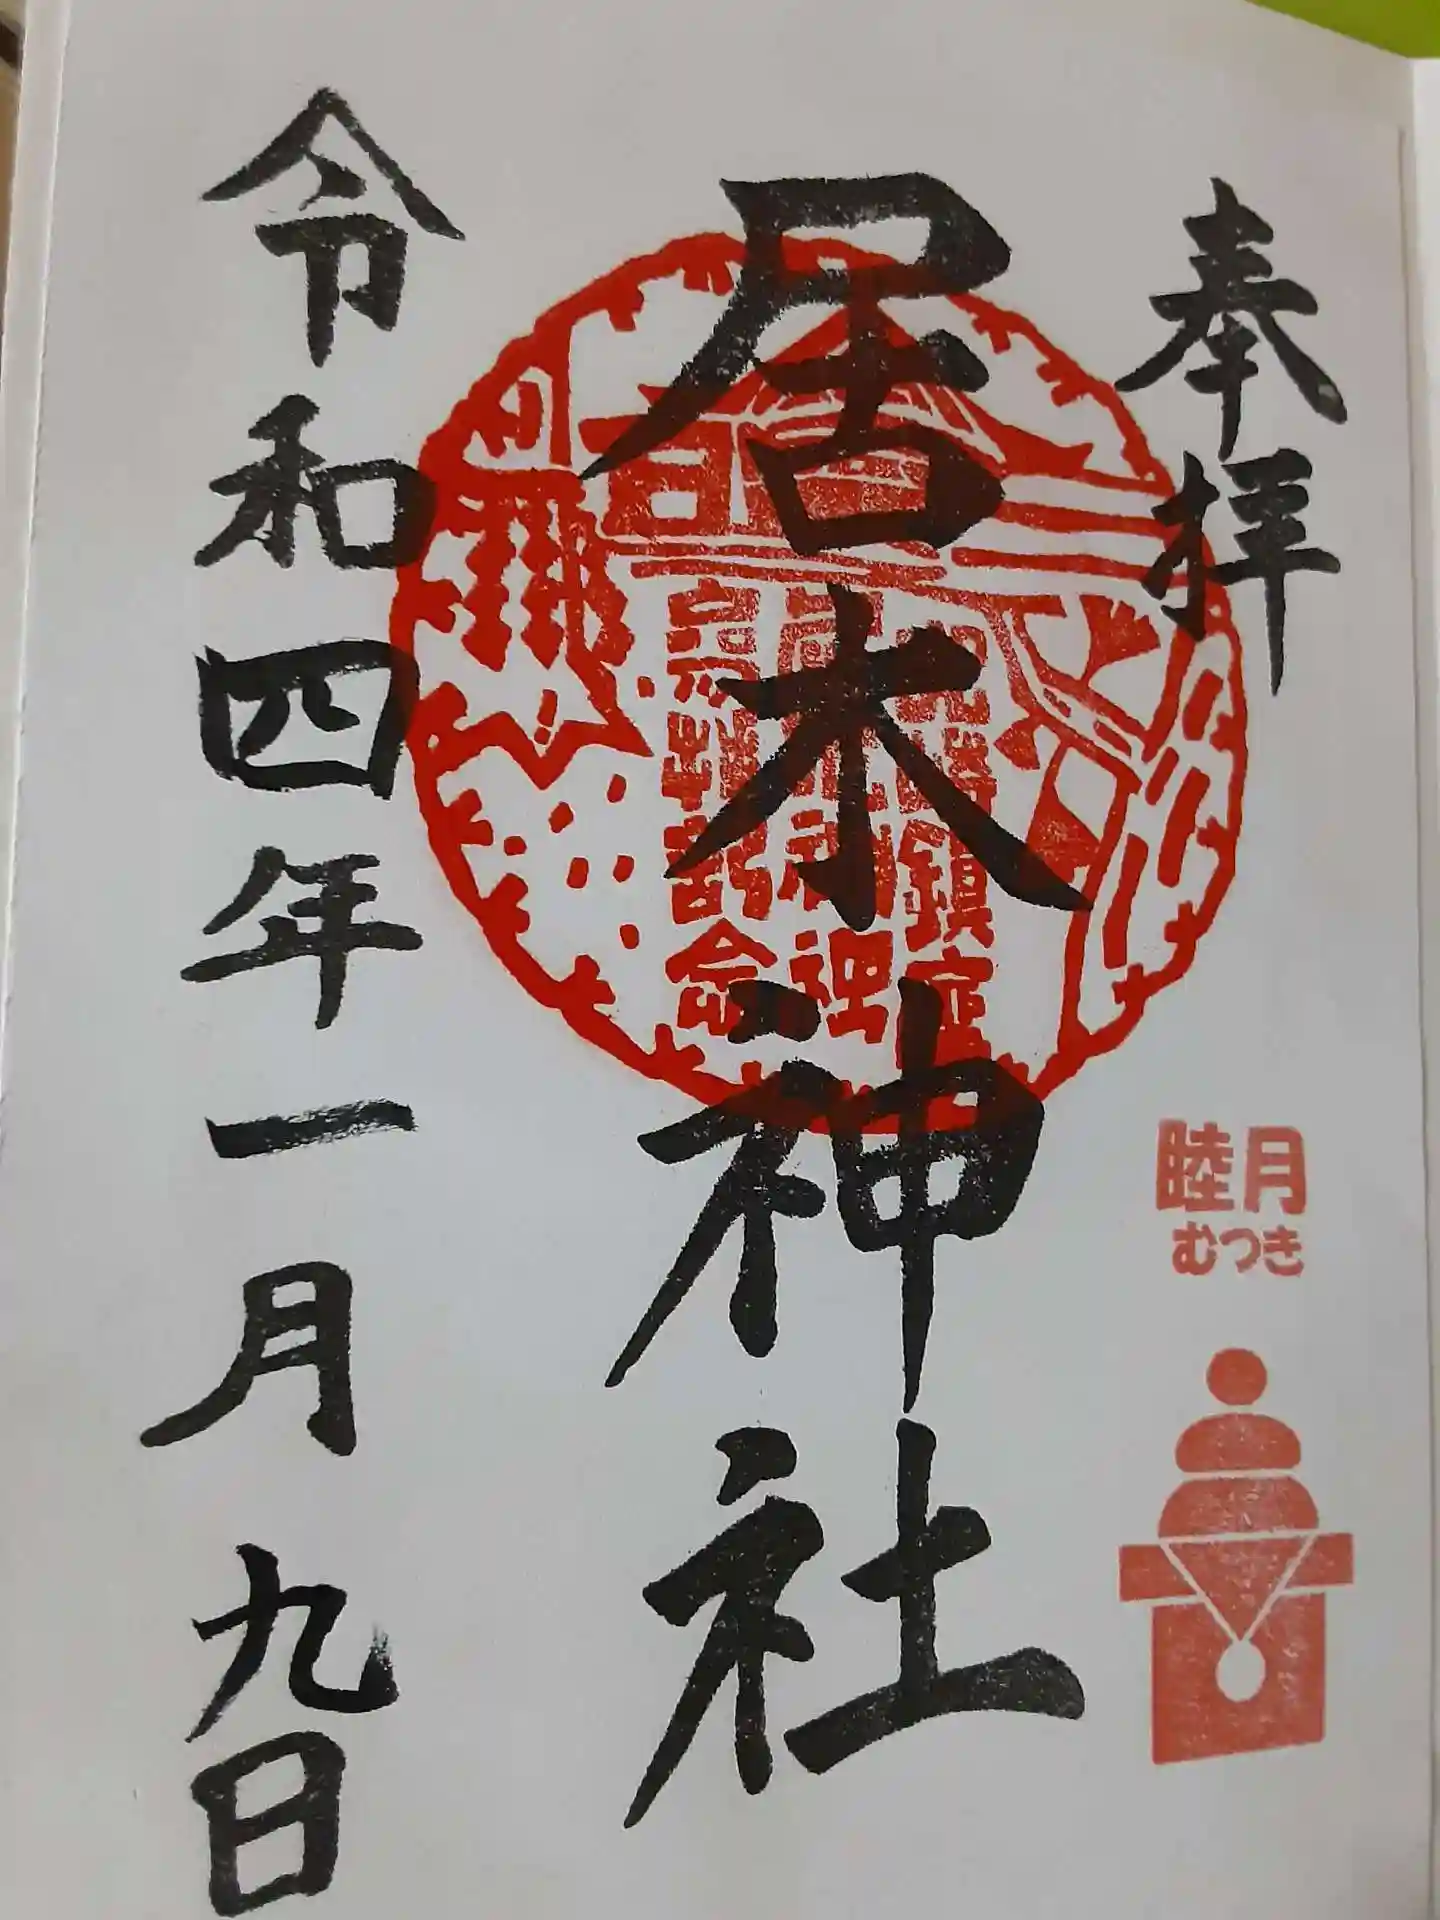 奉拝
睦月
むつき
居木神社
令和四年一月九日